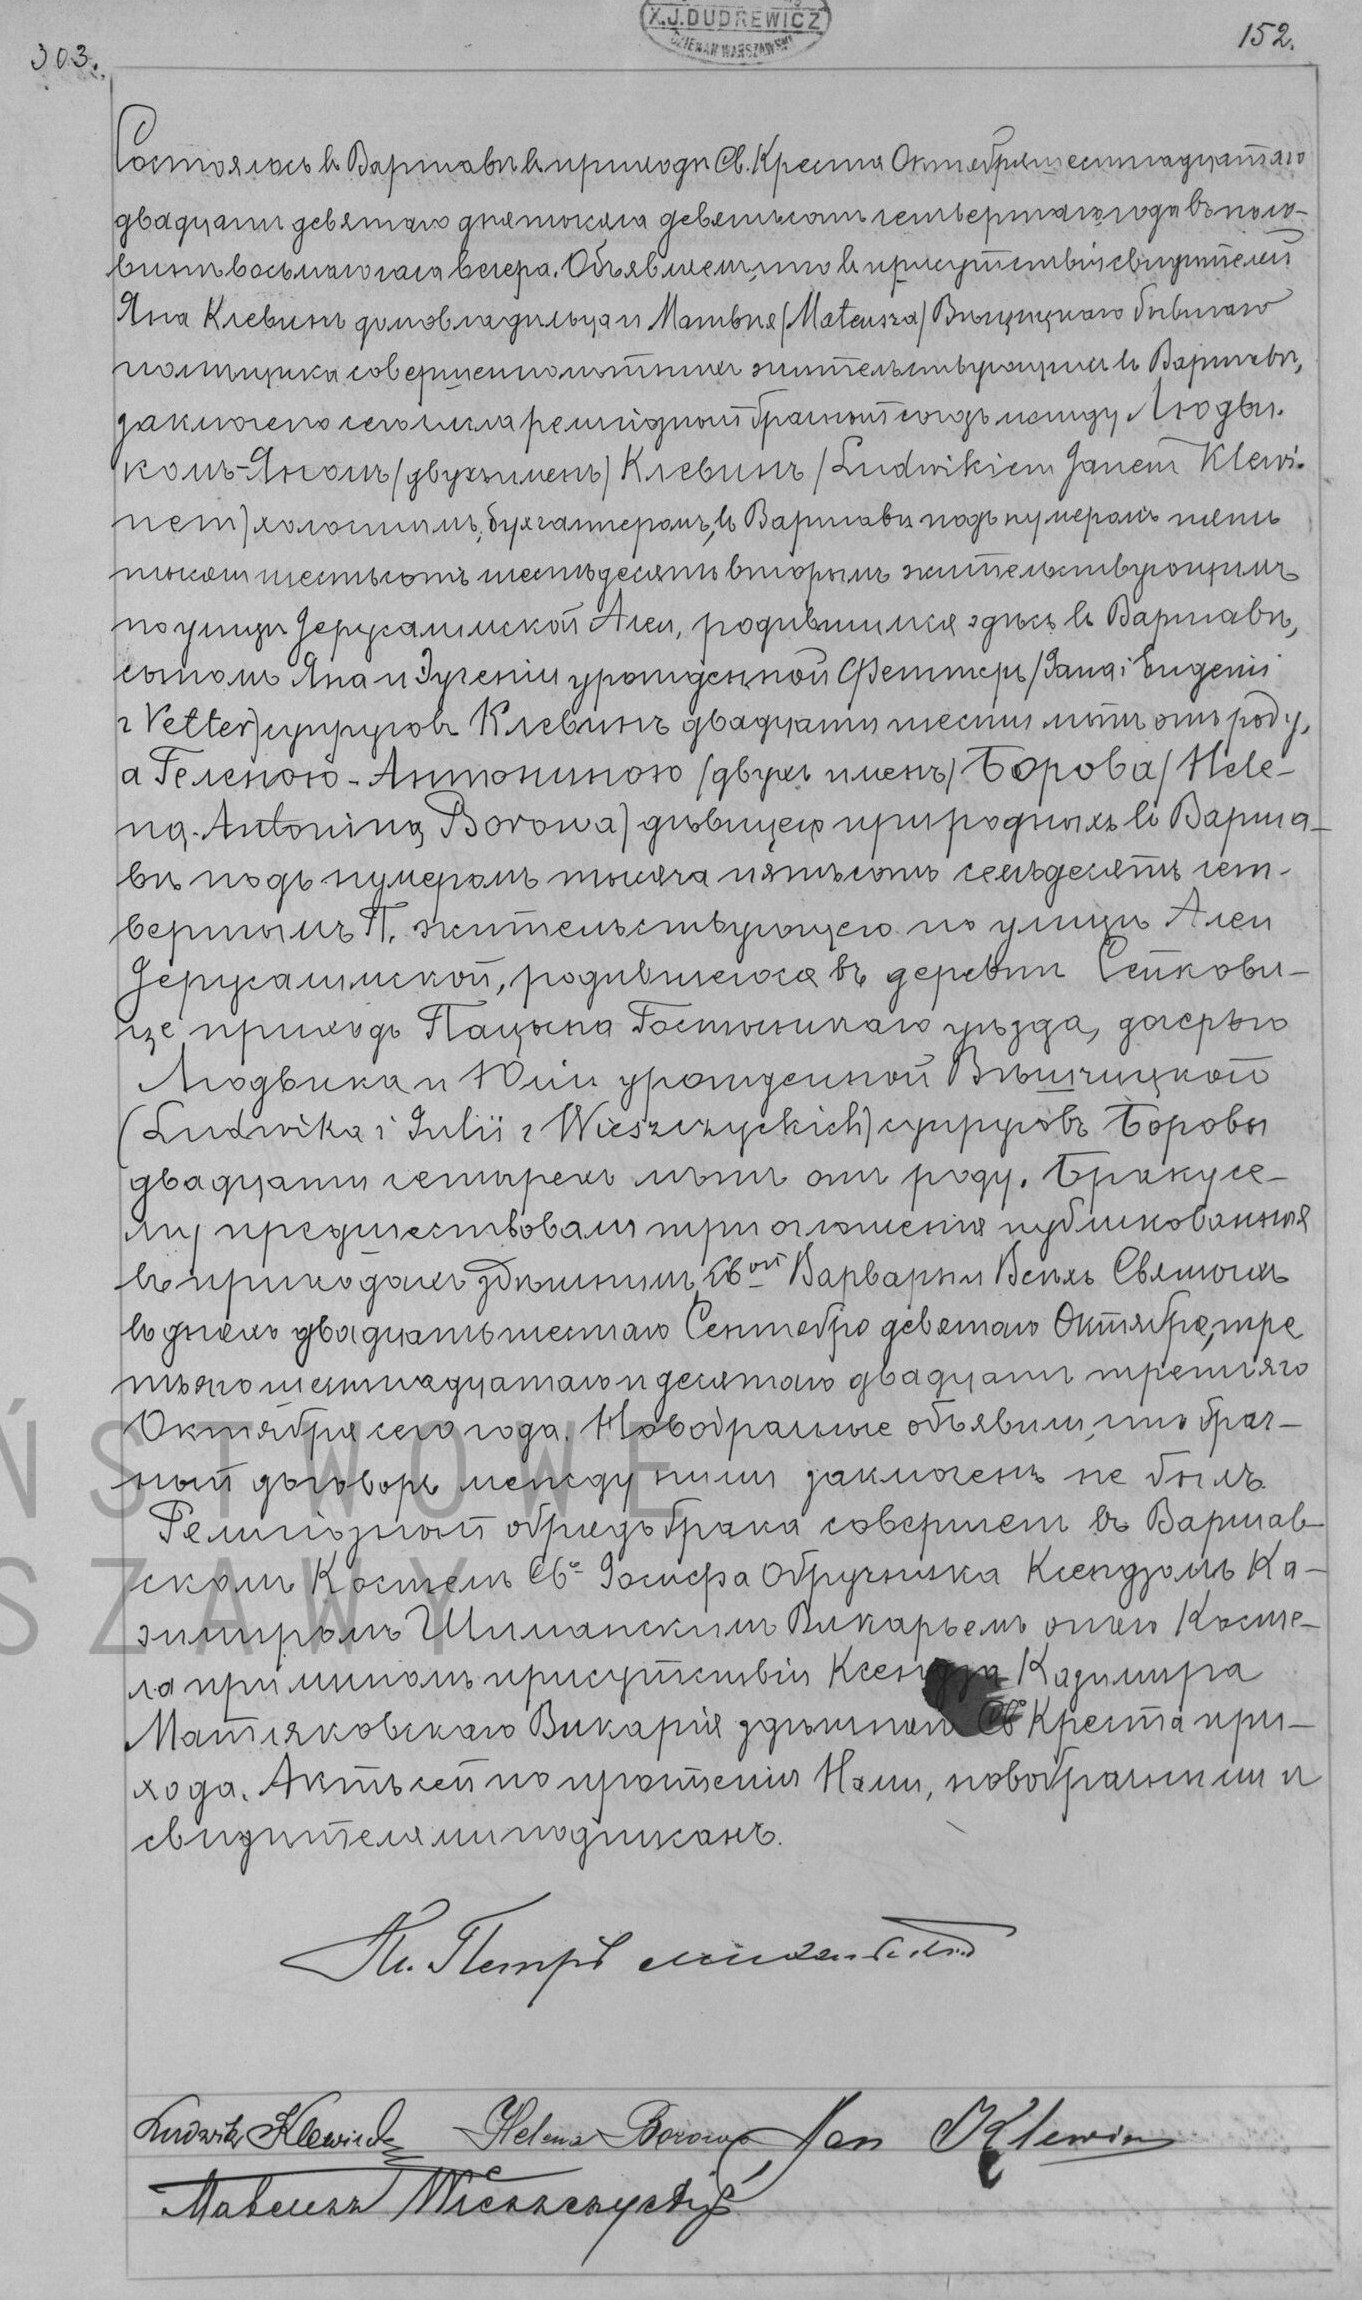 X.J.DUDREWICZ
DZIEKAN WARSZAWSKI
303.
152.
Состоялось въ Варшавѣ въ приходѣ Св. Креста Октября шестнадцатаго
двадцать девятаго дня тысяча девятьсотъ четвертаго года въ поло-
винѣ восьмаго часа вечера. Объявляемъ, что въ присутствіи свидѣтелей
Яна Клевинъ домовладѣльца и Матвѣя (Mateusza) Вѣщицкаго бывшаго
помѣщика совершеннолѣтнихъ жительствующихъ въ Варшавѣ,
заключено сего числа религіозный брачный союзъ между Людви-
комъ-Яномъ (двухъ именъ) Клевинъ (Ludwikiem Janem Klewi-
nem) холостымъ, бухгалтеромъ, въ Варшавѣ подъ нумеромъ пять
тысячъ шестьсотъ шестьдесятъ вторымъ жительствующимъ
по улицѣ Іерусалимской Алеи, родившимся здѣсь въ Варшавѣ,
сыномъ Яна и Эугеніи урожденной Феттеръ (Jana i Eugenii
z Vetter) супруговъ Клевинъ двадцати шести лѣтъ отъ роду,
а Геленою-Антониною (двухъ именъ) Борова (Hele-
ną-Antoniną Borowa) дѣвицею при родныхъ въ Варша-
вѣ подъ нумеромъ тысяча пятьсотъ семьдесятъ чет-
вертымъ П. жительствующею по улицѣ Алеи
Іерусалимской, родившеюся въ деревни Сейкови-
це приходъ Пацына Гостынскаго уѣзда, дочерью
Людвика и Юліи урожденной Вѣщицкой
(Ludwika i Julii z Wieszczyckich) супруговъ Боровы
двадцати четырехъ лѣтъ отъ роду. Браку се-
му предшествовали три оглашенія публикованныя
въ приходахъ здѣшнимъ, Свой Варвары и Всѣхъ Святыхъ
въ дняхъ двадцать шестаго Сентебря девятаго Октября, тре
тьяго шестнадцатаго и десятаго двадцать третьяго
Октября сего года. Новобрачные объявили, что брач-
ный договоръ между ними заключенъ не былъ.
Религіозный обрядъ брака совершенъ въ Варшав-
скомъ Костелѣ Св. Іосифа Обручника Ксендзомъ Ка-
зимиромъ Шиманскимъ Викарьемъ онаго Косте-
ла при личномъ присутствіи Ксендза Казимира
Матяковскаго Викарія здѣшняго Св. Креста при-
хода. Актъ сей по прочтеніи Нами, новобрачными и
свидѣтелями подписанъ.
Кс. Петръ
Ludwik Klewin Helena Borowa Jan Klewin
Mateusz Wieszczycki
ŃSTWOWE
SZAWY